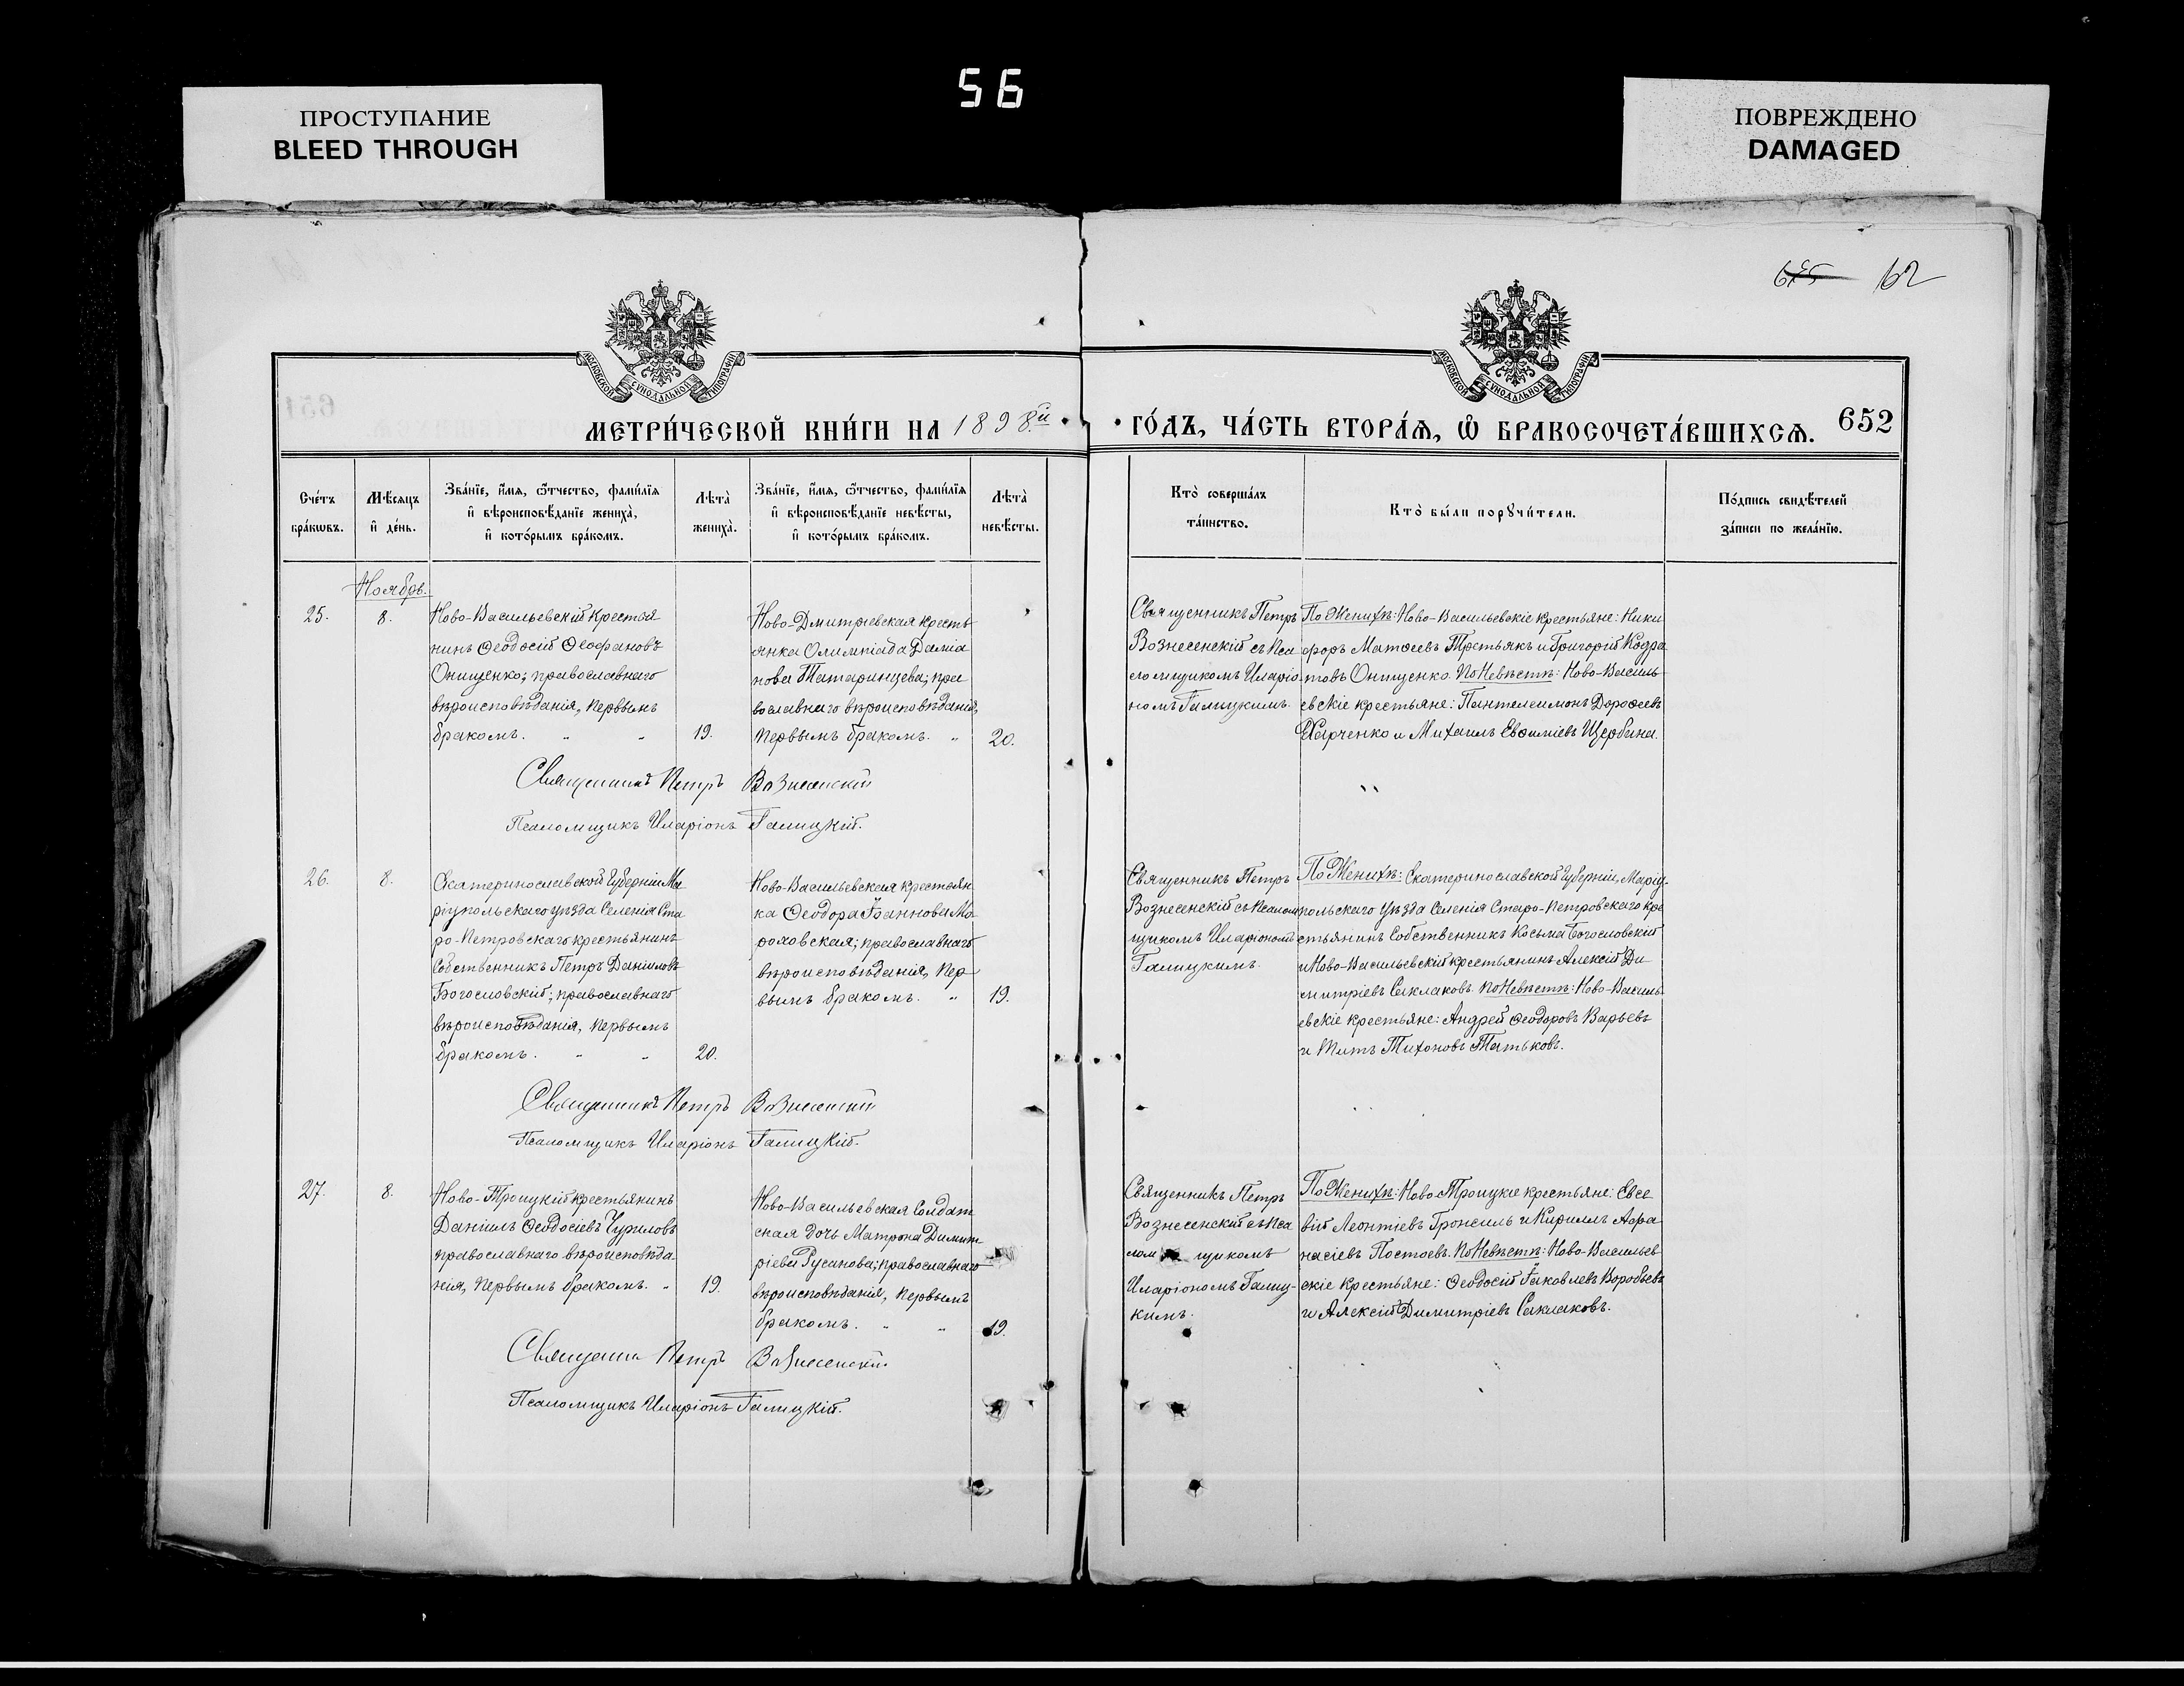 56
ПРОСТУПАНИЕ
BLEED THROUGH
ПОВРЕЖДЕНО
DAMAGED
62
МОСКОВСКОЙ СѴНОДАЛЬНОЙ ТИПОГРАФІИ
МОСКОВСКОЙ СѴНОДАЛЬНОЙ ТИПОГРАФІИ
МЕТРИ́ЧЕСКОЙ КНИ́ГИ НА 1898й
ГО́ДЪ, ЧА́СТЬ ВТОРА́Я, Ѡ БРАКОСОЧЕТА́ВШИХСЯ.
652
Счетъ браковъ.
Мѣсяцъ и день.
Званіе, имя, отчество, фамилія и вѣроисповѣданіе жениха, и которымъ бракомъ.
Лѣта жениха.
Званіе, имя, отчество, фамилія и вѣроисповѣданіе невѣсты, и которымъ бракомъ.
Лѣта невѣсты.
Кто совершалъ таинство.
Кто были поручители.
Подпись свидѣтелей записи по желанію.
Ноябрь.
25.
8.
Ново-Васильевскій крестья
нинъ Ѳеодосій Ѳеофановъ
Онищенко; православнаго
вѣроисповѣданія, первымъ
бракомъ. „ „
19.
Ново-Дмитріевская кресть
янка Олимпіада Даміа
нова Татаринцева; пра
вославнаго вѣроисповѣданія,
первымъ бракомъ. „
20.
Священникъ Петръ
Вознесенскій съ Пса
ломщикомъ Иларіо
номъ Галицкимъ.
По Женихѣ: Ново-Васильевскіе крестьяне: Ники
форъ Матѳеевъ Третьякъ и Григорій Кодра
товъ Онищенко. По Невѣстѣ: Ново-Василь
евскіе крестьяне: Пантелеимонъ Дороѳеевъ
Харченко и Михаилъ Евѳиміевъ Щербина.
Священникъ Петръ Вознесенскій
Псаломщикъ Иларіонъ Галицкій.
26.
8.
Екатеринославской Губерніи Ма
ріупольскаго уѣзда Селенія Ста
ро-Петровскаго крестьянинъ
Собственникъ Петръ Даніиловъ
Богословскій; православнаго
вѣроисповѣданія, первымъ
бракомъ. „ „
20.
Ново-Васильевская крестьян
ка Ѳеодора Іоаннова Ма
роховская; православнаго
вѣроисповѣданія, пер
вымъ бракомъ. „
19.
Священникъ Петръ
Вознесенскій съ Псалом
щикомъ Иларіономъ
Галицкимъ.
По Женихѣ: Екатеринославской Губерніи, Маріу-
польскаго Уѣзда Селенія Старо-Петровскаго кре
стьянинъ Собственникъ Косьма Богословскій
и Ново-Васильевскій крестьянинъ Алексій Ди
митріевъ Саклаковъ. По Невѣстѣ: Ново-Василь
евскіе крестьяне: Андрей Ѳеодоровъ Варьевъ
и Титъ Тихоновъ Татьковъ.
Священникъ Петръ Вознесенскій
Псаломщикъ Иларіонъ Галицкій.
27.
8.
Ново-Троицкій крестьянинъ
Даніилъ Ѳеодосіевъ Чуриловъ
православнаго вѣроисповѣда
нія, первымъ бракомъ. „
19.
Ново-Васильевская Солдат
ская дочь Матрона Димит
ріева Русанова; православнаго
вѣроисповѣданія, первымъ
бракомъ. „ „
19.
Священникъ Петръ
Вознесенскій съ Пса
лом щикомъ
Иларіономъ Галиц-
кимъ.
По Женихѣ: Ново-Троицкіе крестьяне: Евсе
вій Леонтіевъ и Кириллъ Аѳа
насіевъ Постоевъ. По Невѣстѣ: Ново-Васильев
скіе крестьяне: Ѳеодосій Іаковлевъ Воробьевъ
и Алексій Димитріевъ Саклаковъ.
Священни Петръ Вознесенскій
Псаломщикъ Иларіонъ Галицкій.